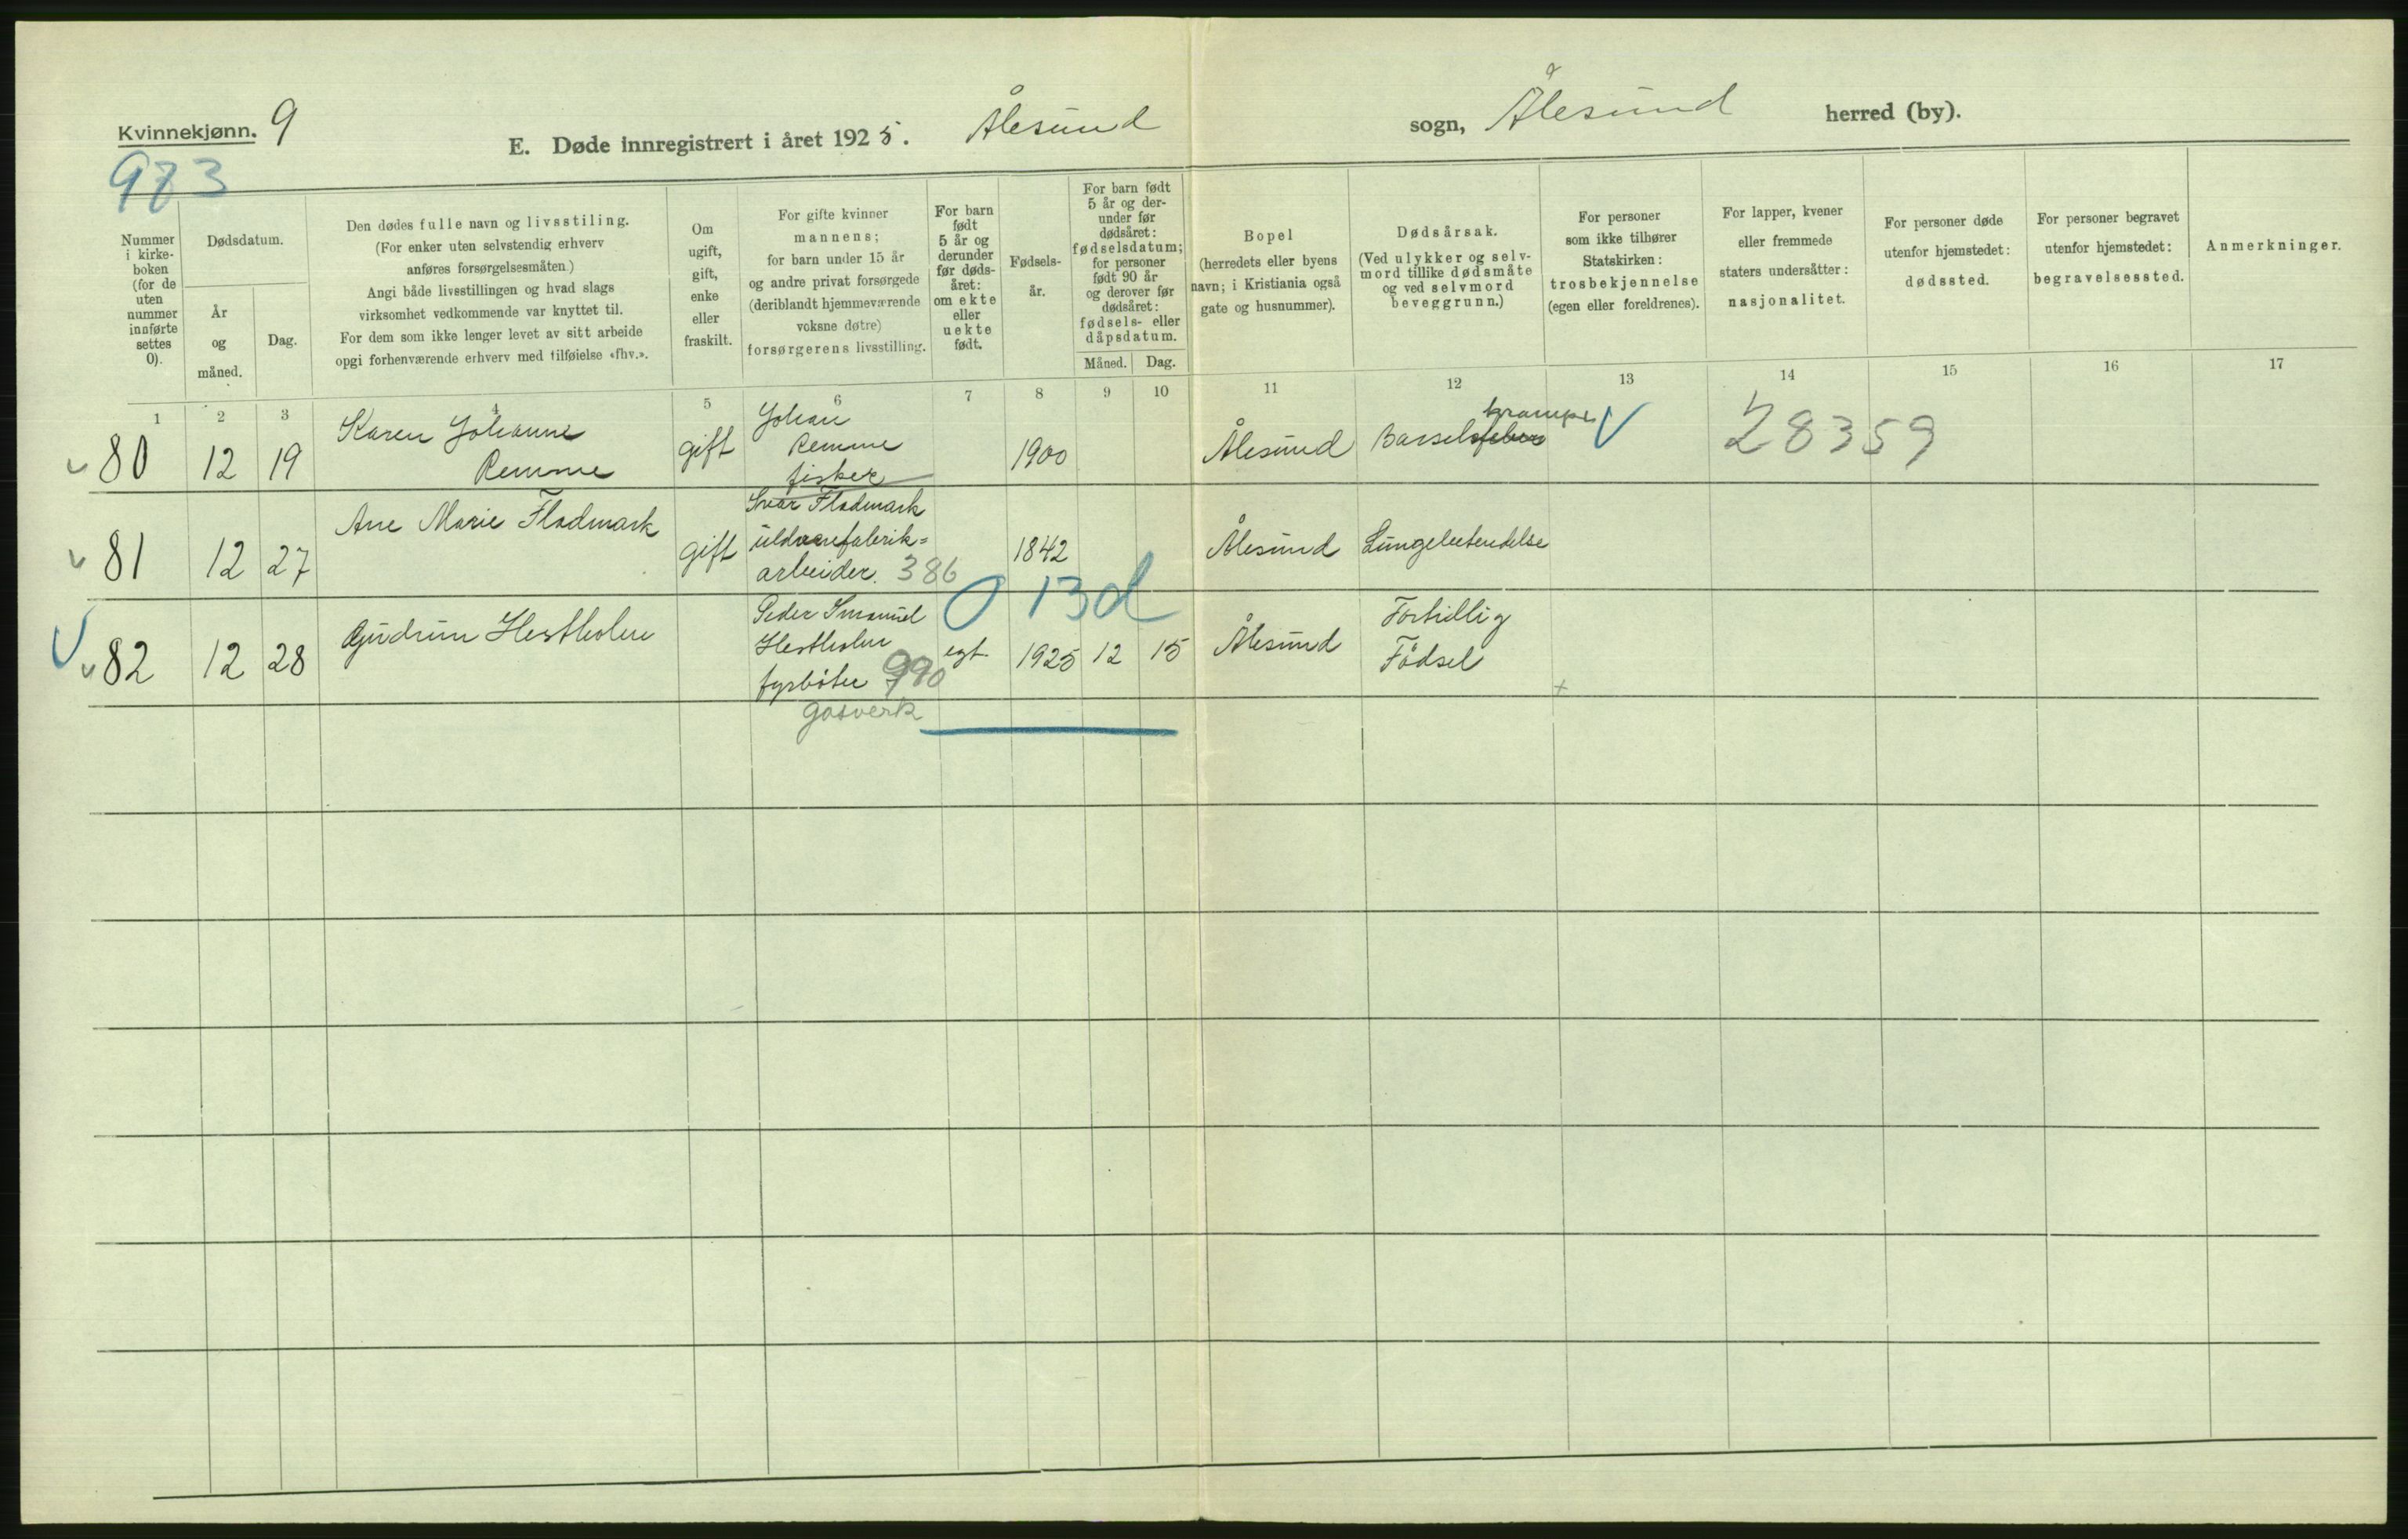 Kvinnekjønn. 9
973
E. Døde innregistrert i året 1925. Ålesund sogn, Ålesund herred (by).
Nummer
i kirke-
boken
(for de
uten
nummer
innførte
settes
0).
Dødsdatum.
År
og
måned.
Dag.
Den dødes fulle navn og livsstiling.
(For enker uten selvstendig erhverv
anføres forsørgelsesmåten)
Angi både livsstillingen og hvad slags
virksomhet vedkommende var knyttet til.
For dem som ikke lenger levet av sitt arbeide
opgi forhenværende erhverv med tilføielse «fhv.».
Om
ugift,
gift,
enke
eller
fraskilt.
For gifte kvinner
mannens;
for barn under 15 år
og andre privat forsørgede
(deriblandt hjemmeværende
voksne døtre)
forsørgerens livsstilling.
For barn
født
5 år og
derunder
før døds-
året:
om ekte
eller
uekte
født.
Fødsels-
år.
For barn født
5 år og der-
under før
dødsåret:
fødselsdatum;
for personer
født 90 år
og derover før
dødsåret:
fødsels- eller
dåpsdatum.
Måned. Dag.
Bopel
(herredets eller byens
navn; i Kristiania også
gate og husnummer).
Dødsårsak.
(Ved ulykker og selv-
mord tillike dødsmåte
og ved selvmord
beveggrunn.)
For personer
som ikke tilhører
Statskirken:
trosbekjennelse
(egen eller foreldrenes).
For lapper, kvener
eller fremmede
staters undersåtter:
nasjonalitet.
For personer døde
utenfor hjemstedet:
dødssted.
For personer begravet
utenfor hjemstedet:
begravelsessted.
Anmerkninger.
1 2 3 4 5 6 7 8 9 10 11 12 13 14 15 16 17
80 12 19 Karen Johanne
Remme
gift
Johan
Remme
fisker
1900 Ålesund
krampe
Barselsfeber
28359
81 12 27 Ane Marie Fladmark
gift
Ivar Fladmark
uldvarefabrik=
arbeider. 386
1842 Ålesund Lungebetendelse
0 13d
82 12 28 Gudrun Hestholm
Peder Emanuel
Hestholm
fyrbøter 990
gasverk
egt. 1925 12 15 Ålesund
Fortidlig
Fødsel